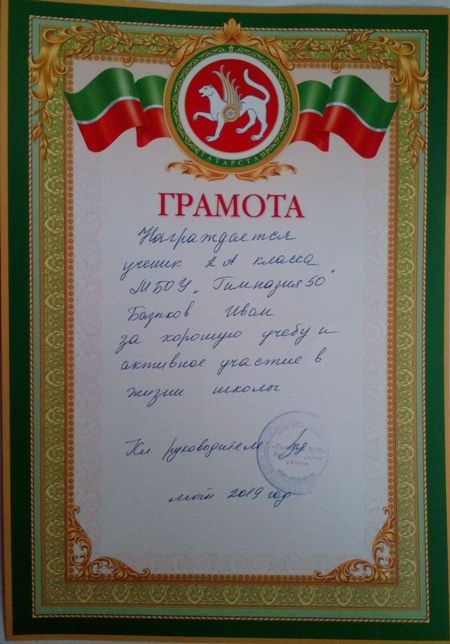 ТАТАРСТАН
ГРАМОТА
Награждается
ученик 2А класса
МБОУ „Гимназия 50"
Базыков Иван
за хорошую учебу и
активное участие в
жизни школы.
Кл. руководитель:
май 2019 год